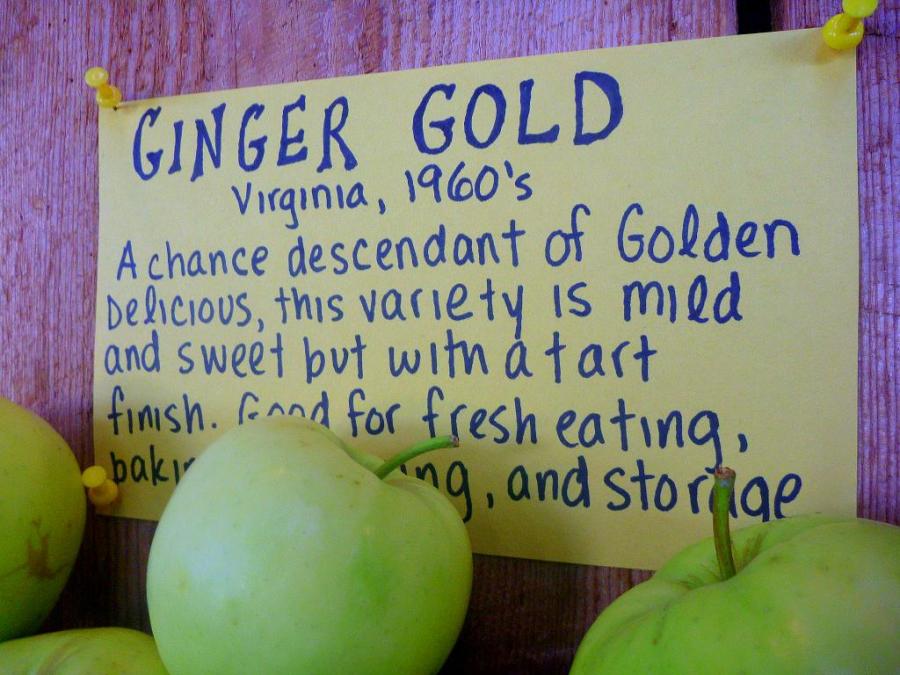 GINGER GOLD
Virginia, 1960's
A chance descendant of Golden
Delicious, this variety is mild
and sweet but with a tart
finish. Good for fresh eating,
, and storage